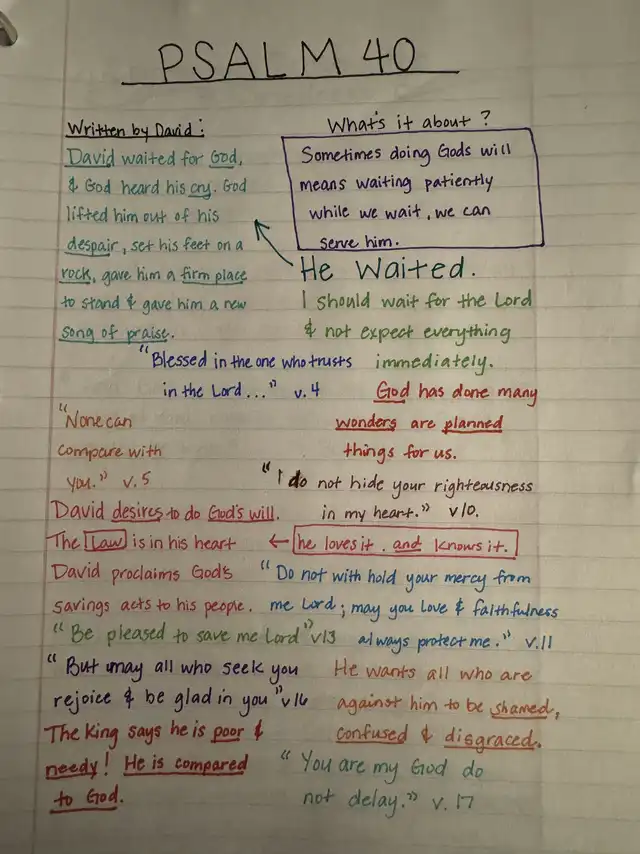 PSALM 40
Written by David:
David waited for God,
& God heard his cry. God
lifted him out of his
despair, set his feet on a
rock, gave him a firm place
to stand & gave him a new
song of praise.
What's it about?
Sometimes doing Gods will
means waiting patiently
while we wait, we can
serve him.
He Waited.
I should wait for the Lord
& not expect everything
immediately.
"Blessed in the one who trusts
in the Lord..." v.4
God has done many
wonders are planned
things for us.
"None can
compare with
you." v.5
"I do not hide your righteousness
in my heart." v10.
David desires to do God's will.
The Law is in his heart
← he loves it. and knows it.
David proclaims God's
savings acts to his people.
"Do not with hold your mercy from
me Lord; may you love & faithfulness
always protect me." v.11
"Be pleased to save me Lord" v13
"But may all who seek you
rejoice & be glad in you" v16
He wants all who are
against him to be shamed,
confused & disgraced.
The King says he is poor &
needy! He is compared
to God.
"You are my God do
not delay." v.17